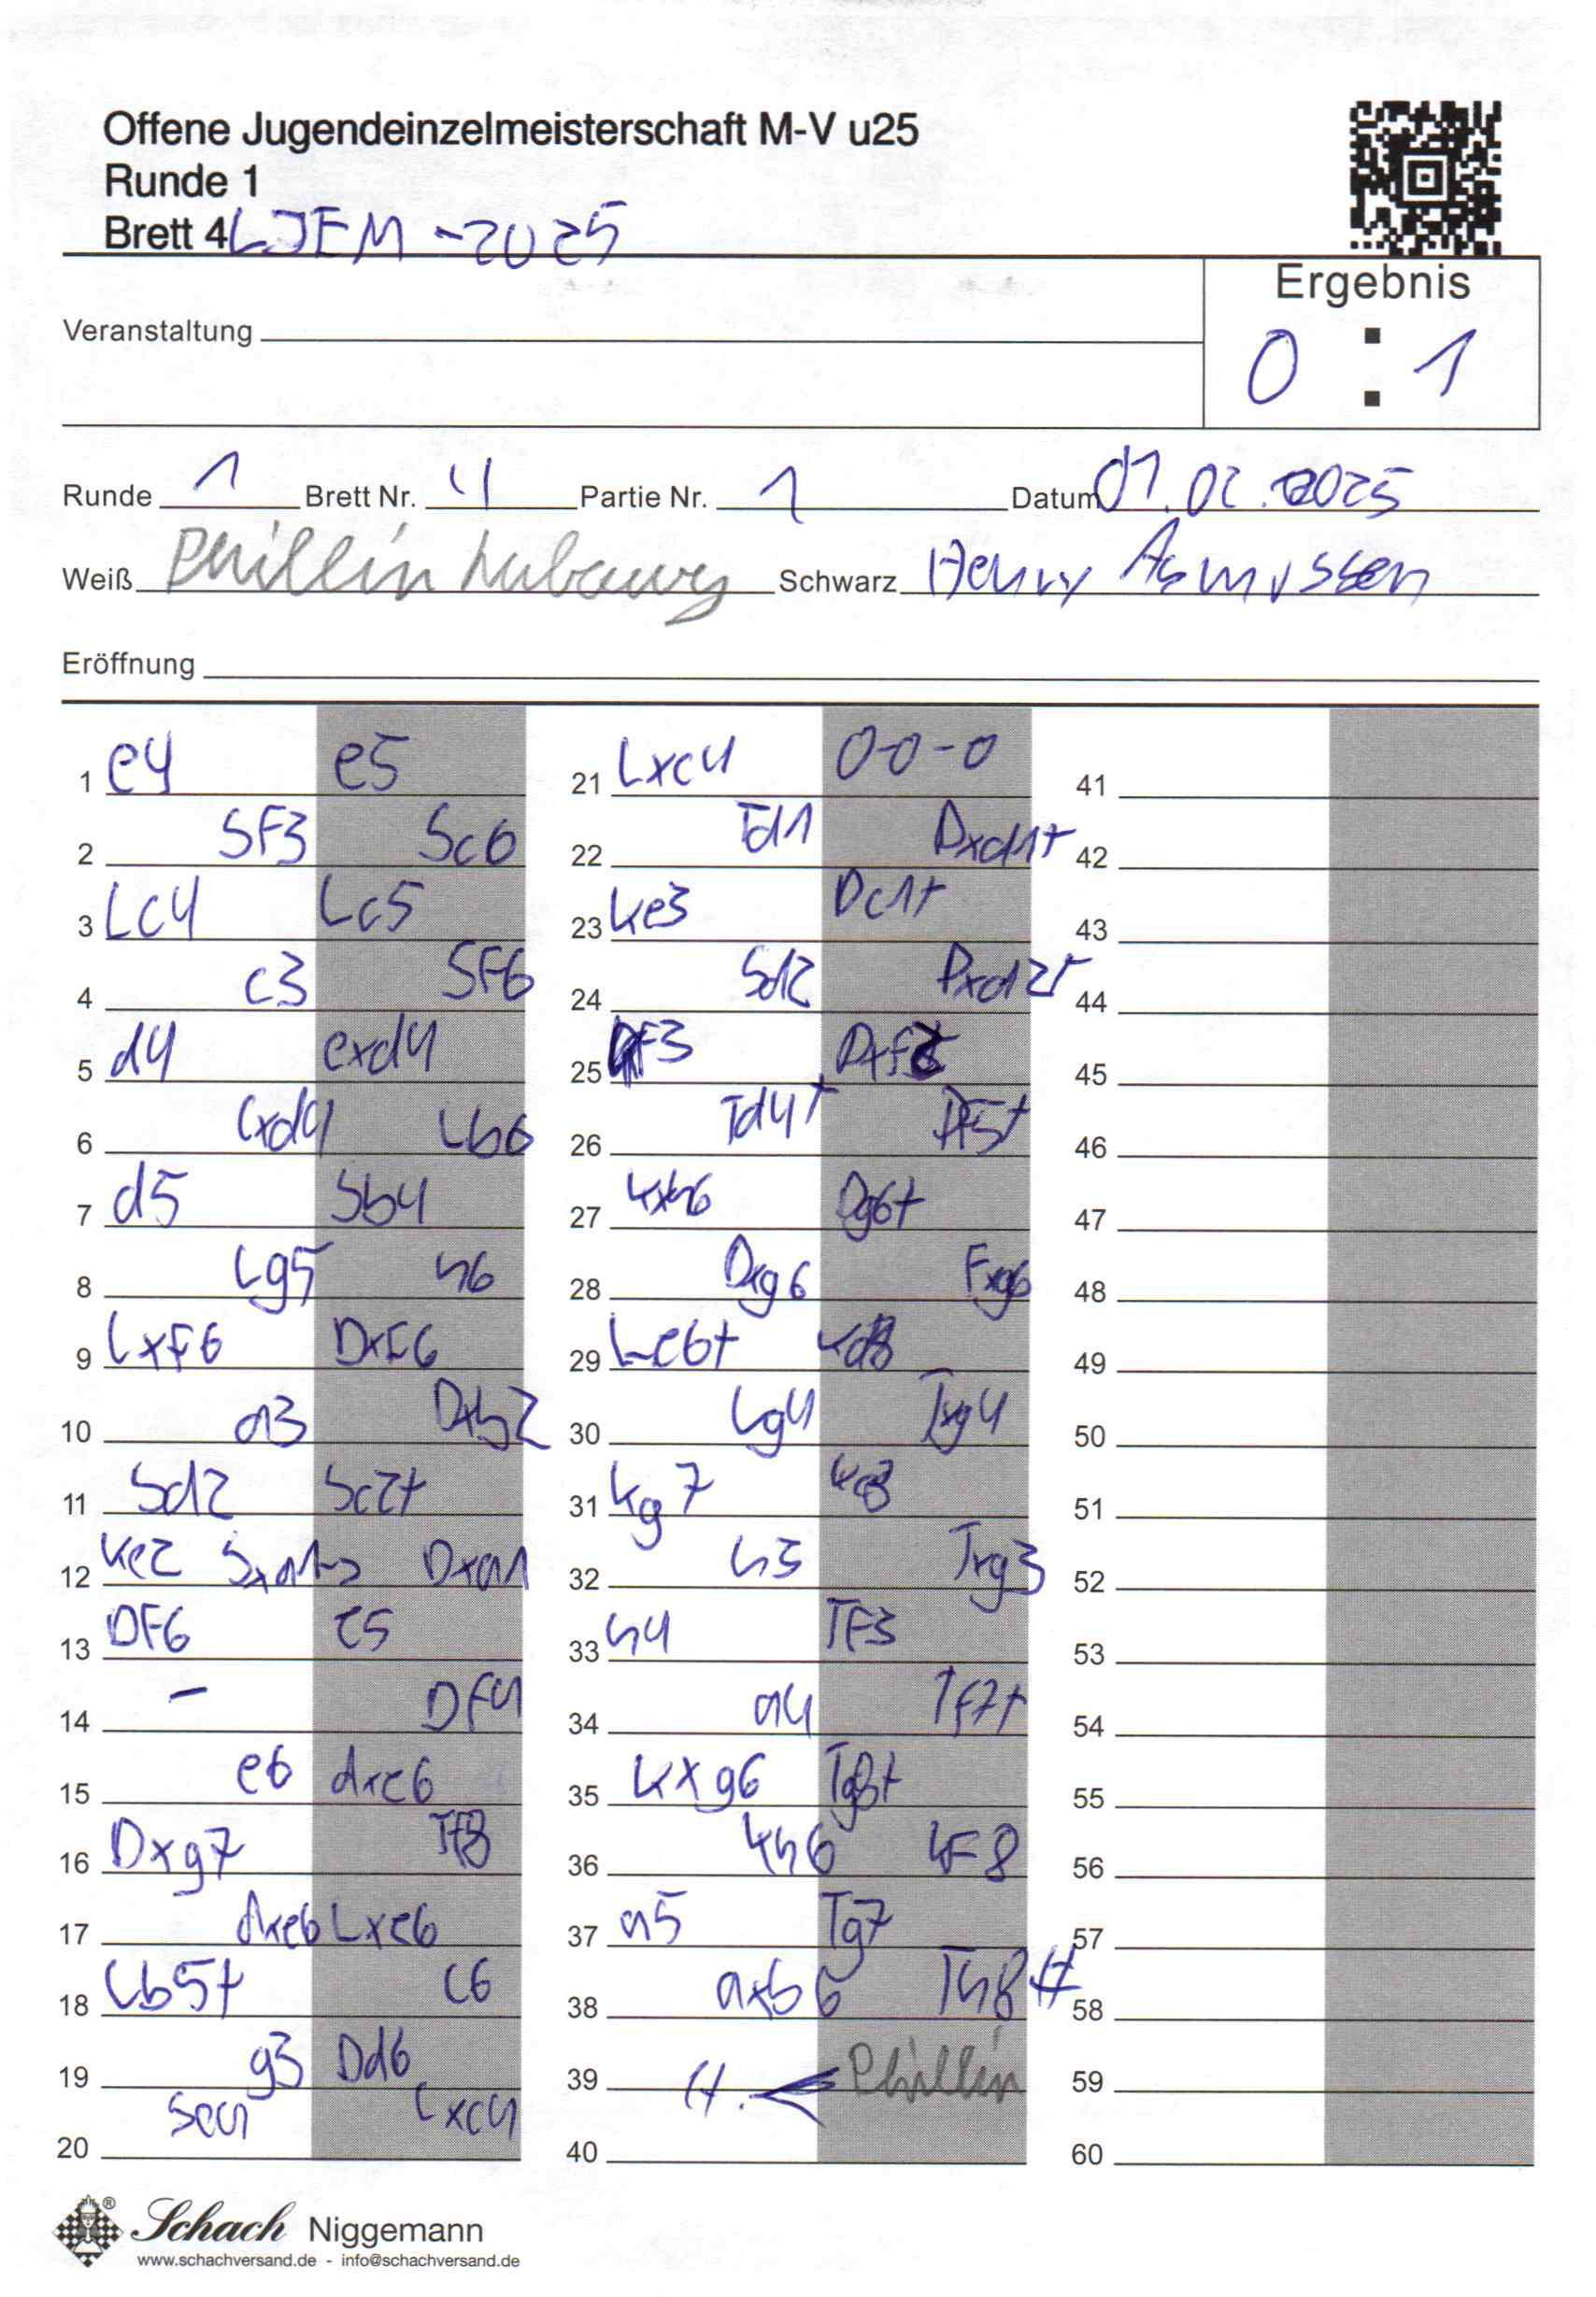 Offene Jugendeinzelmeisterschaft M-V u25
Runde 1
Brett 4 LJEM -2025
Ergebnis
Veranstaltung
0 : 1
Runde 1 Brett Nr. 4 Partie Nr. 1 Datum 01.02.2025
Weiß Phillin Schwarz Henry Asmussen
Eröffnung
1 e4 e5
2 SF3 Sc6
3 Lc4 Lc5
4 c3 SF6
5 d4 exd4
6 cxd4 Lb6
7 d5 Sb4
8 Lg5 h6
9 LxF6 DxF6
10 a3 Dxb2
11 Sd2 Sc2+
12 Ke2 Sxa1 Dxa1
13 DF6 e5
14 - Df4
15 e6 dxe6
16 Dxg7 Tf8
17 dxe6 Lxe6
18 Lb5+ c6
19 g3 Dd6
20 Sc4 Lxc4
21 Lxc4 0-0-0
22 Td1 Dxd1+
23 Ke3 Dc1+
24 Sd2 Dxd2+
25 F3
26 Td4+ DF5+
27 Kxh6 Dg6+
28 Dxg6 Fxg6
29 Le6+ Kd8
30 Lg4 Txg4
31 Kg7
32 h3 Txg3
33 h4 TF3
34 a4 Tf7+
35 Kxg6 Tg8+
36 Kh6 LF8
37 a5 Tg7
38 axb6 Th8#
39 Phillin
40
41
42
43
44
45
46
47
48
49
50
51
52
53
54
55
56
57
58
59
60
Schach Niggemann
www.schachversand.de - info@schachversand.de